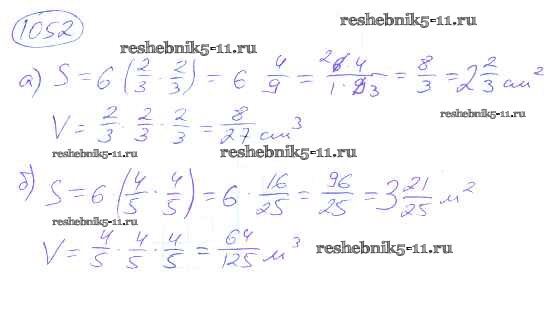 1052
reshebnik5-11.ru
reshebnik5-11.ru
а) S = 6 (2/3 · 2/3) = 6 4/9 = 2 6 4 / 1 · 9 3 = 8/3 = 2 2/3 см²
reshebnik5-11.ru
V = 2/3 · 2/3 · 2/3 = 8/27 см³
reshebnik5-11.ru
reshebnik5-11.ru
б) S = 6 (4/5 · 4/5) = 6 · 16/25 = 96/25 = 3 21/25 м²
reshebnik5-11.ru
V = 4/5 · 4/5 · 4/5 = 64/125 м³
reshebnik5-11.ru